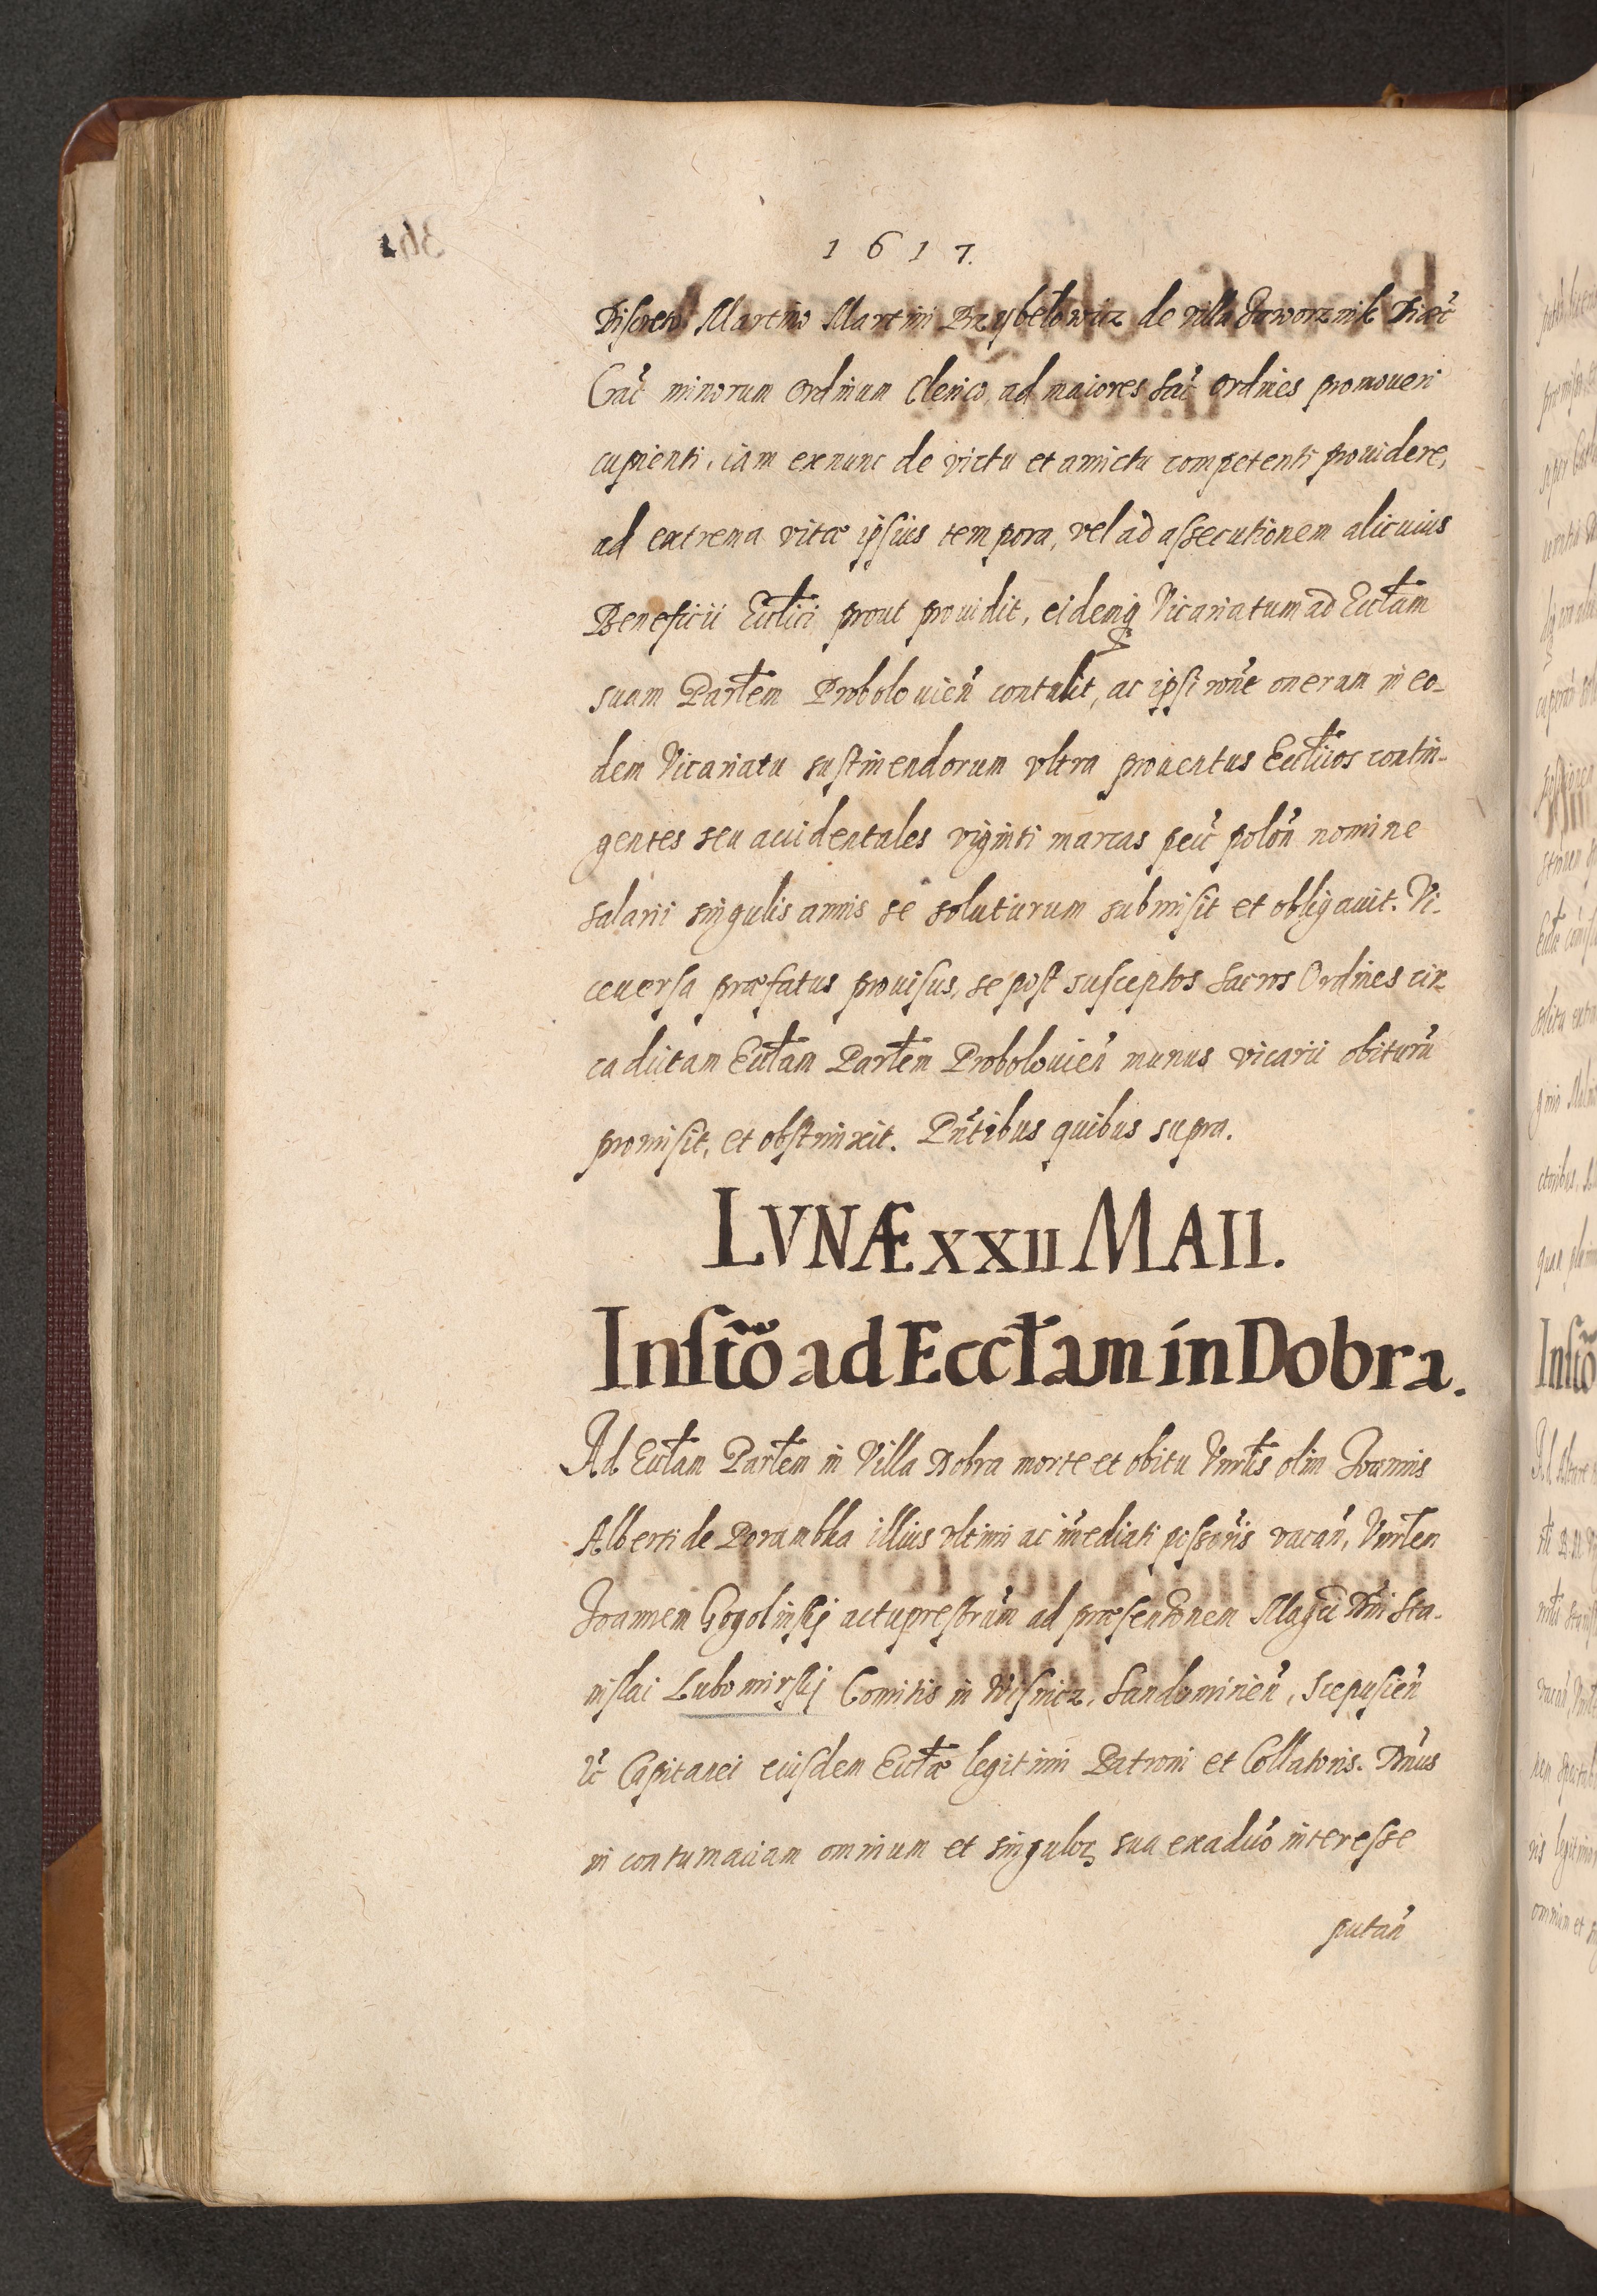 1617.
Discreto Martino Martini Przybełowicz de villa Jaworznik Diæc̃
Crac̃ minorum Ordinum Clerico ad maiores sac̃ ordines promoueri
cupienti, iam exnunc de victu et amictu competenti prouidere,
ad extrema vitæ ipsius tempora, vel ad assecutionem alicuius
Beneficii Eccl̃ici prout prouidit, eidemq Vicariatum ad Eccl̃am
suam Parl̃em Probolouien̄ contulit, ac ipsi rōne onerum in eo-
dem Vicariatu sustinendorum vltra prouentus Eccl̃icos contin-
gentes seu accidentales viginti marcas pec̃ polon̄ nomine
salarii singulis annis se soluturum submisit et obligauit. Vi-
ceuersa præfatus prouisus, se post susceptos Sacros Ordines cir-
ca dictam Eccl̃am Parl̃em Probolouien̄ munus vicarii obiturū
promisit, et obstrinxit. Pñtibus quibus supra.
LVNÆ XXII MAII.
Instc̃õ ad Eccl̃am in Dobra.
Ad Eccl̃am Parl̃em in Villa Dobra morte et obitu Vnrl̃is olim Joannis
Alberti de Porambka illius vltimi ac im̄ediati possōris vacan̄, Vnrl̃em
Joannem Gogolinskj actupresbrūm ad præsentōnem Magc̃i Dñi Sta-
nislai Lubomirskj Comitis in Wisnicz, Sandomirien̄, Scepusien̄
ec̃ Capitanei eiusdem Eccl̃æ legitimi Patroni et Collatoris. Dñus
in contumaciam omnium et singuloꝝ sua exaduõ interesse
putan̄